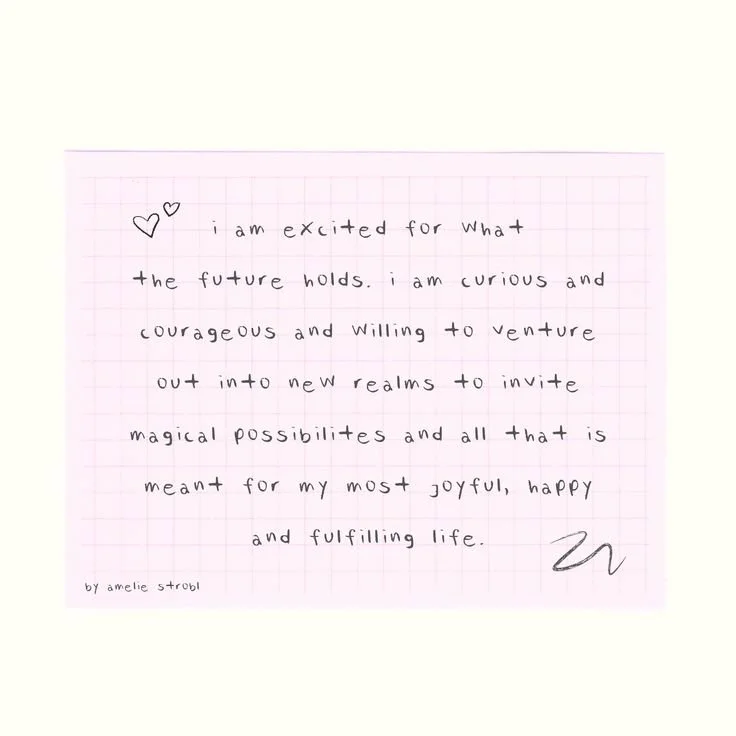 i am excited for what
the future holds. i am curious and
courageous and willing to venture
out into new realms to invite
magical possibilites and all that is
meant for my most joyful, happy
and fulfilling life.
by amelie strobl